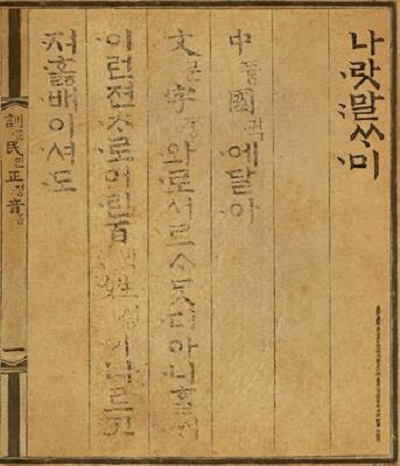 나랏말ᄊᆞ미
中듕國귁에달아
文문字ᄍᆞᆼ와로서르ᄉᆞᄆᆞᆺ디아니ᄒᆞᆯᄊᆡ
이런젼ᄎᆞ로어린百ᄇᆡᆨ姓셩이니르고
져홇배이셔도
訓훈民민正정音음
一